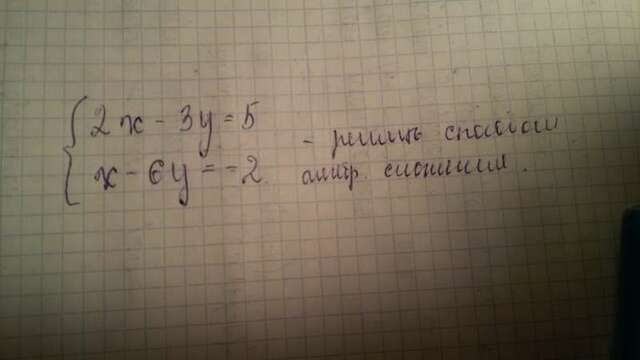 2x - 3y = 5
x - 6y = -2
- решить способом
алгебр. сложения.